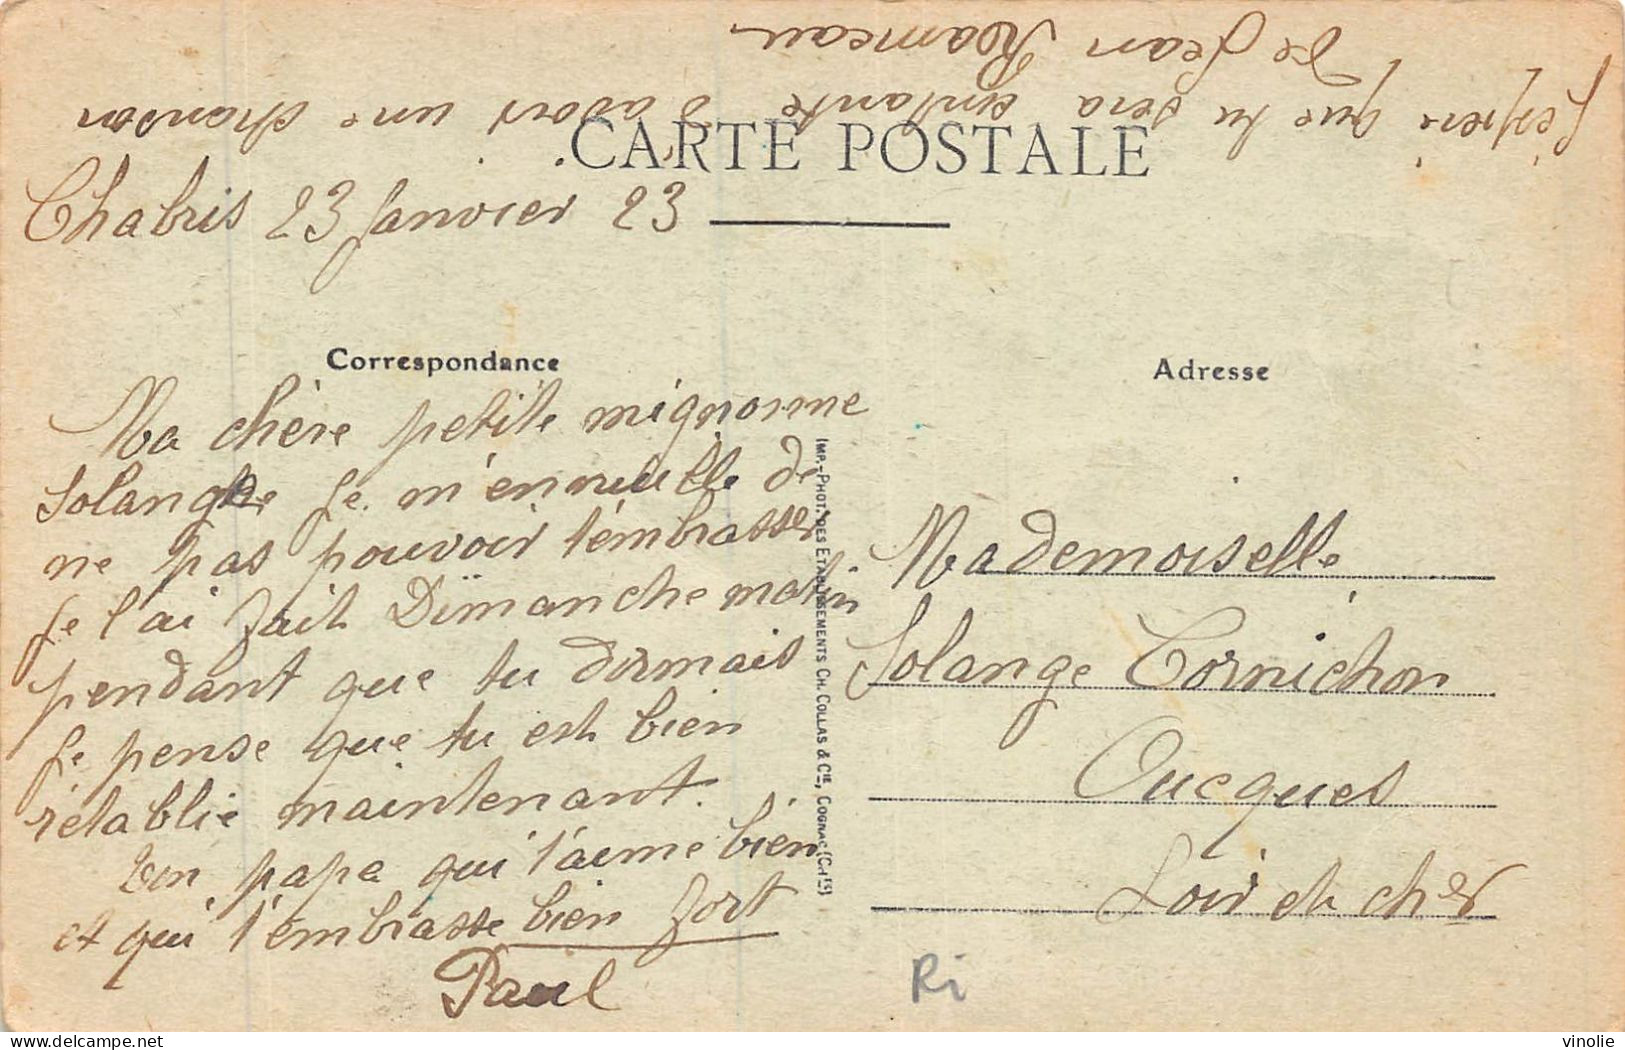 J'espere que tu sera contante d'avoir une chanson
De Jean Rameau
CARTE POSTALE
Chabris 23 Janvier 23
Correspondance
Adresse
Ma chère petite mignonne
Solange Je m'ennuille de
ne pas pouvoir t'émbrasser
Je l'ai fait Dimanche matin
pendant que tu dormais
Je pense que tu est bien
rétablie maintenant.
Ton papa qui t'aime bien
et qui t'embrasse bien fort
Paul
IMP.-PHOT. DES ETABLISSEMENTS CH. COLLAS & CIE, COGNAC (CHTES)
Mademoiselle
Solange Cornichon
Oucques
Loir et cher
Ri
vinolie